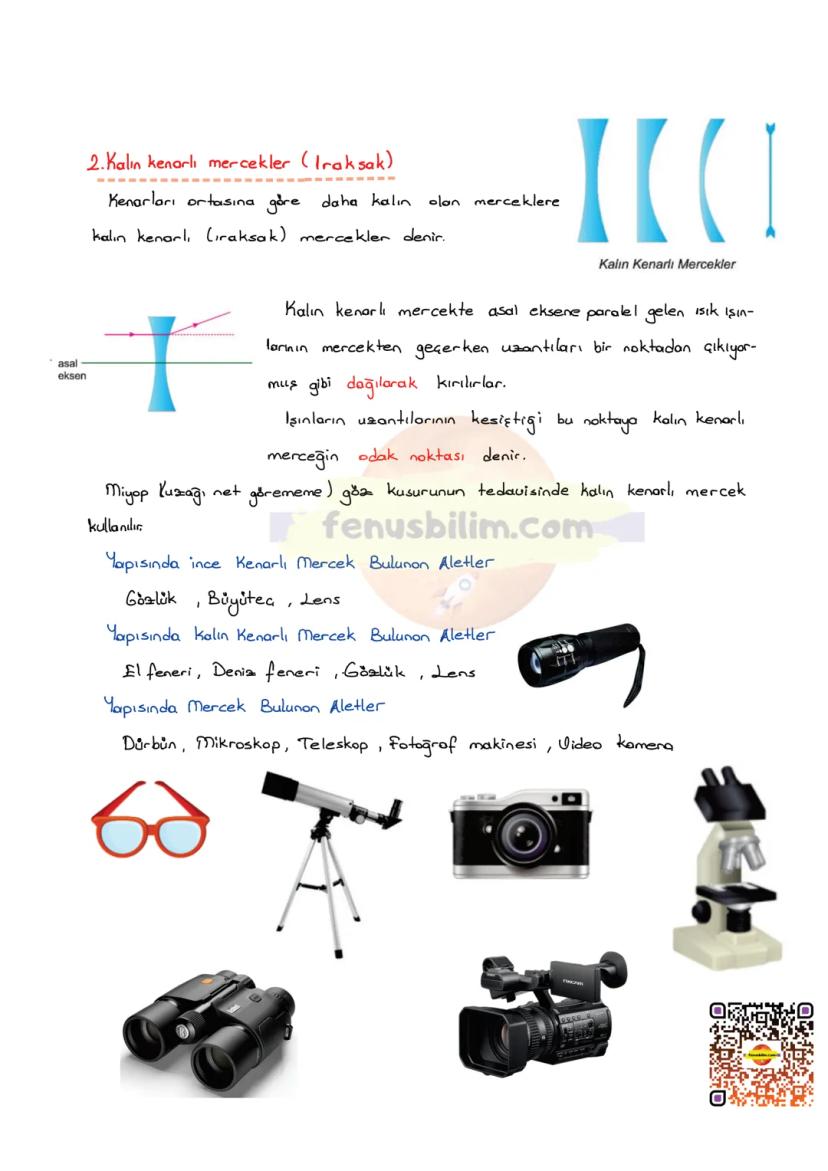 2. Kalın kenarlı mercekler (Iraksak)
Kenarları ortasına göre daha kalın olan merceklere
kalın kenarlı (ıraksak) mercekler denir.
Kalın Kenarlı Mercekler
Kalın kenarlı mercekte asal eksene paralel gelen ışık ışın-
larının mercekten geçerken uzantıları bir noktadan çıkıyor-
muş gibi dağılarak kırılırlar.
asal
eksen
Işınların uzantılarının kesiştiği bu noktaya kalın kenarlı
merceğin odak noktası denir.
Miyop (uzağı net görememe) göz kusurunun tedavisinde kalın kenarlı mercek
kullanılır.
fenusbilim.com
Yapısında ince Kenarlı Mercek Bulunan Aletler
Gözlük , Büyüteç , Lens
Yapısında Kalın Kenarlı Mercek Bulunan Aletler
El feneri, Deniz feneri , Gözlük , Lens
Yapısında Mercek Bulunan Aletler
Dürbün, Mikroskop, Teleskop , Fotoğraf makinesi , Video kamera
fenusbilim.com